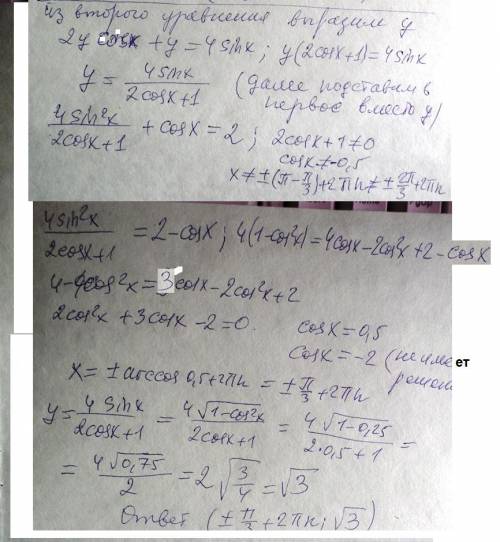 из второго уравнения выразим y
2y cosx + y = 4sinx; y(2cosx+1)=4sinx
y = 4sinx/(2cosx+1) (далее подставим в первое вместо y)
4sin²x/(2cosx+1) + cosx = 2; 2cosx+1≠0
cosx≠-0,5
x≠±(π-π/3)+2πn≠±2π/3+2πn
4sin²x/(2cosx+1) = 2-cosx; 4(1-cos²x)=4cosx-2cos²x+2-cosx
4-4cos²x=3cosx-2cos²x+2
2cos²x+3cosx-2=0. cosx=0,5
cosx=-2 (не имеет решен
x=±arccos0,5+2πn=±π/3+2πn
y=4sinx/(2cosx+1)=4√(1-cos²x)/(2cosx+1)=4√(1-0,25)/(2·0,5+1)=
=4√0,75/2=2√(3/4)=√3
Ответ (±π/3+2πn; √3)